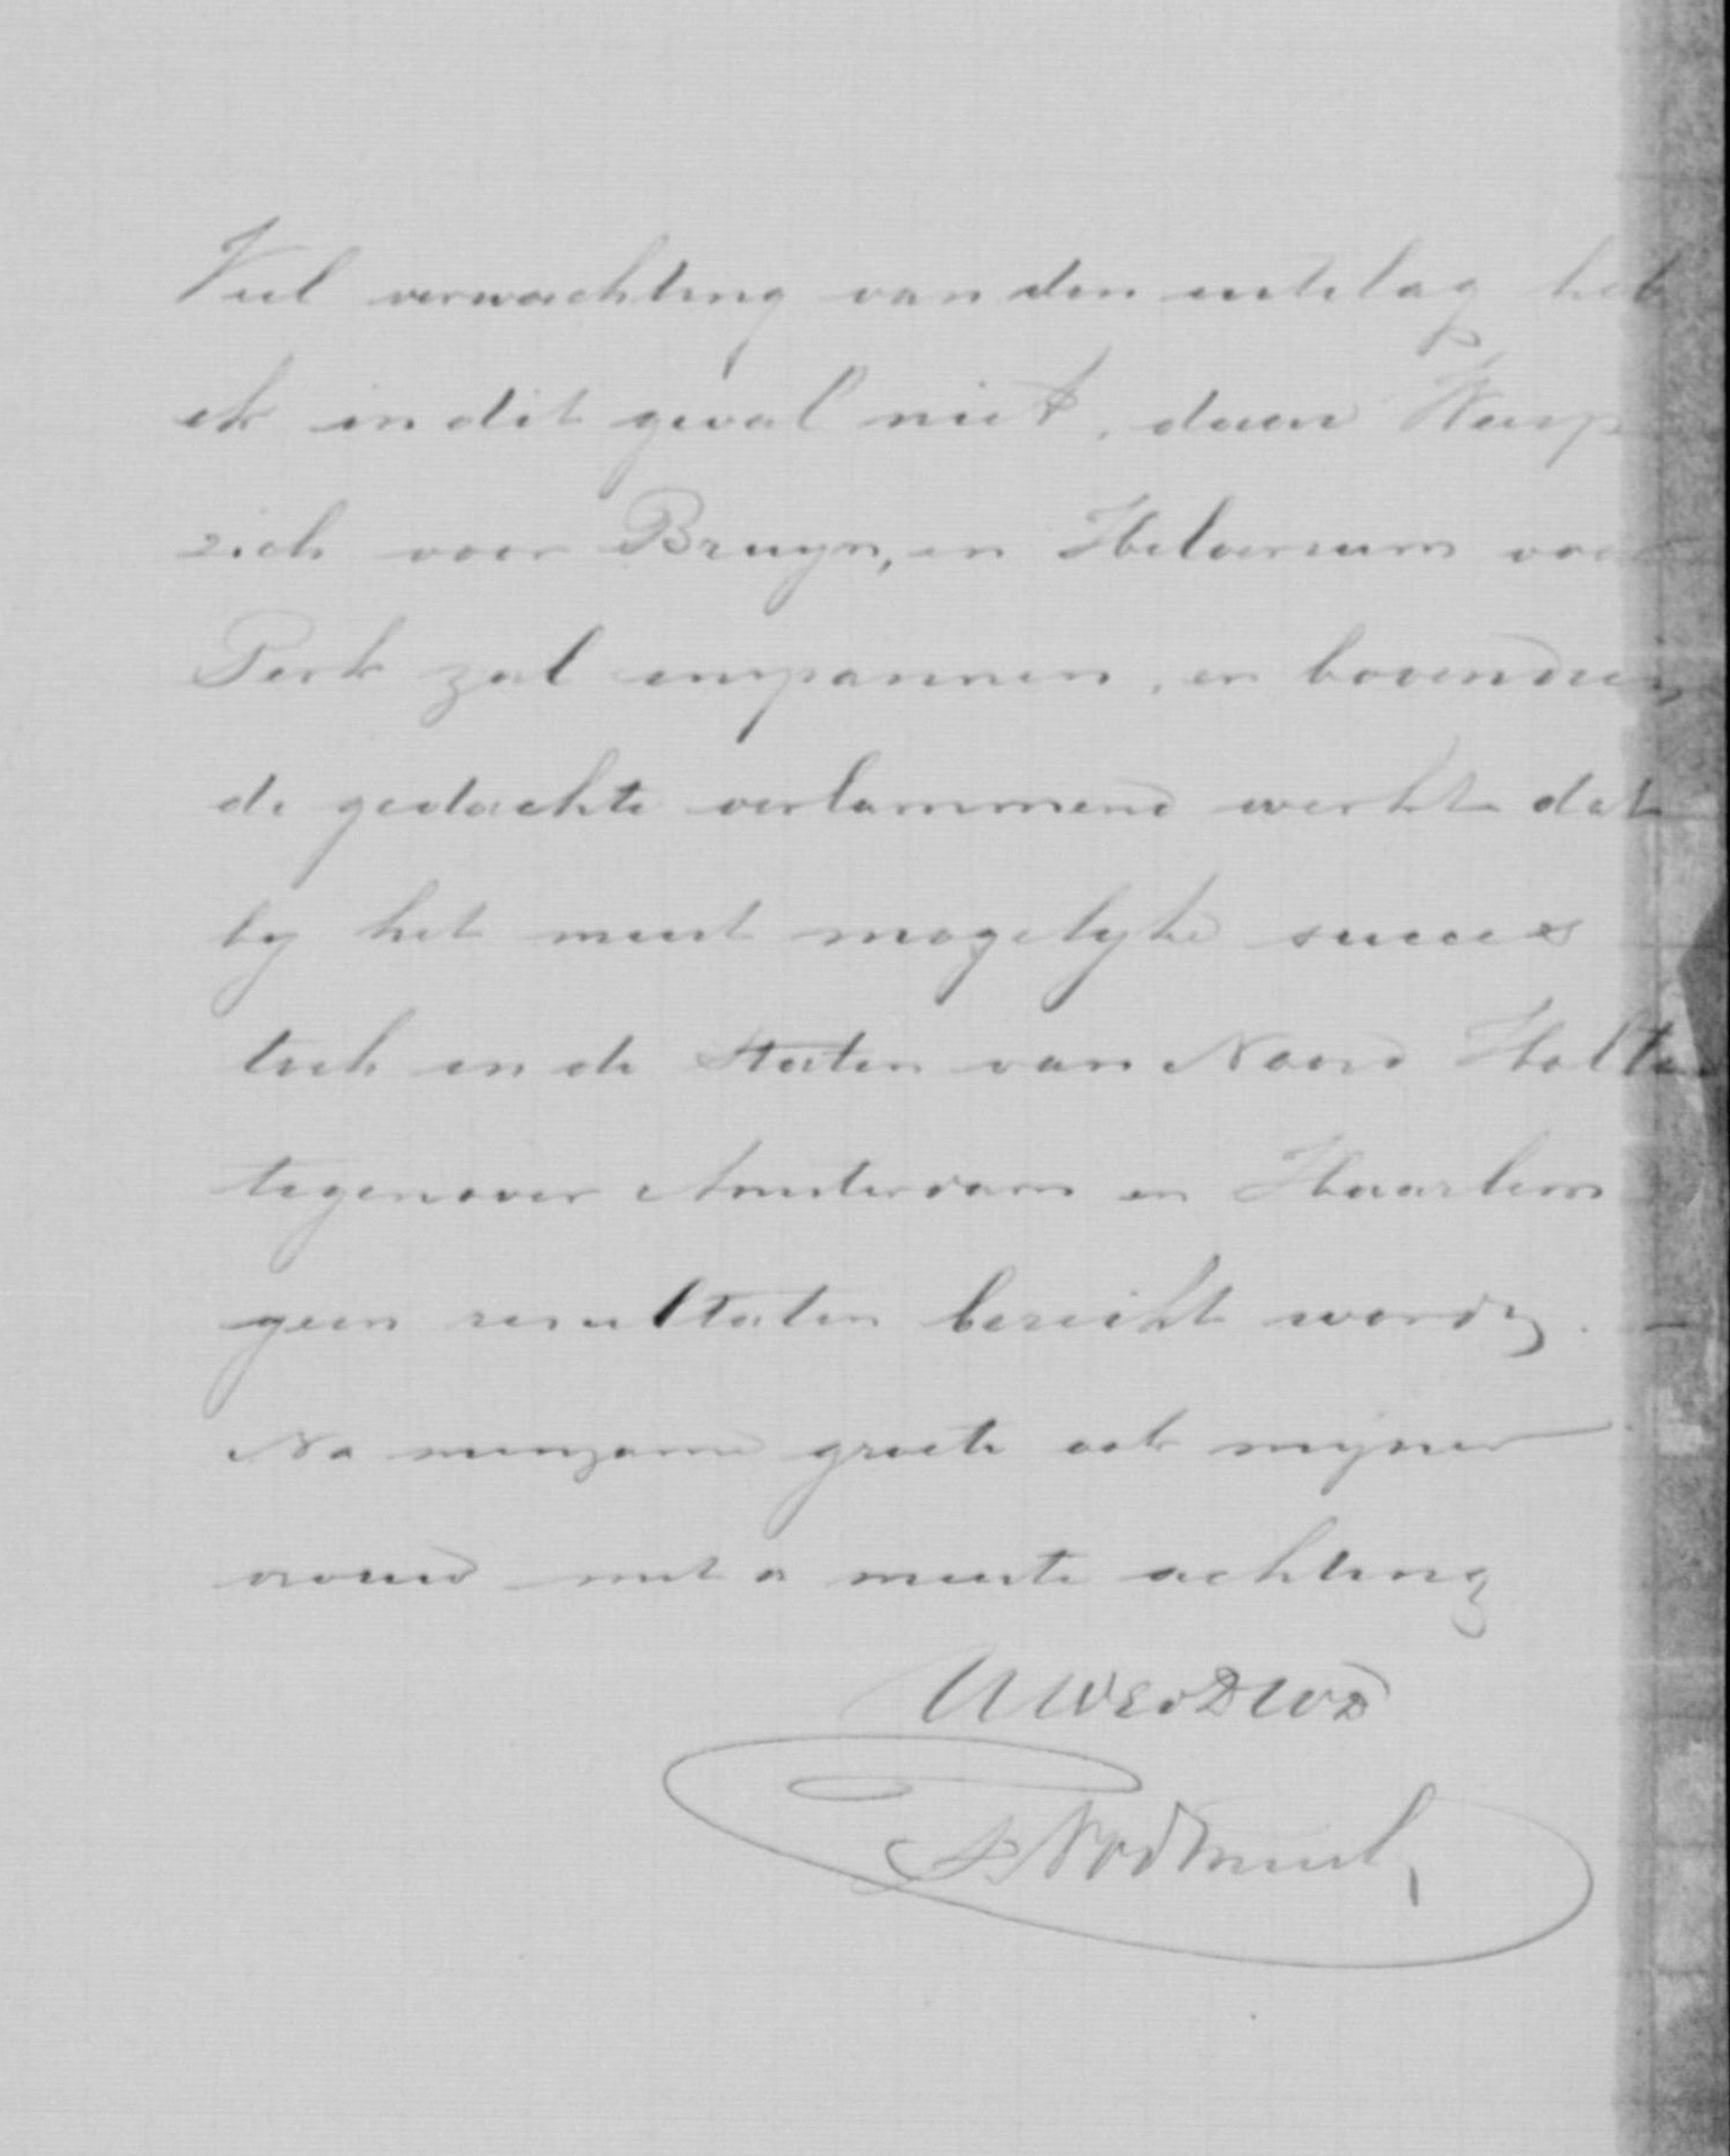 Veel verwachting van den uitslag heb
ik in dit geval niet, daar Weesp
zich voor Bruyn, en Hilversum voor
Perk zal inspannen, en bovendien
de gedachte verlammend werkt dat
by het meest mogelyke succes
toch in de Staten van Noord Holla
tegenover Amsterdam en Haarlem
geen resultaten bereikt worden. —
Na minzame groete ook myner
vrouw met de meeste achting
UWEdDWD